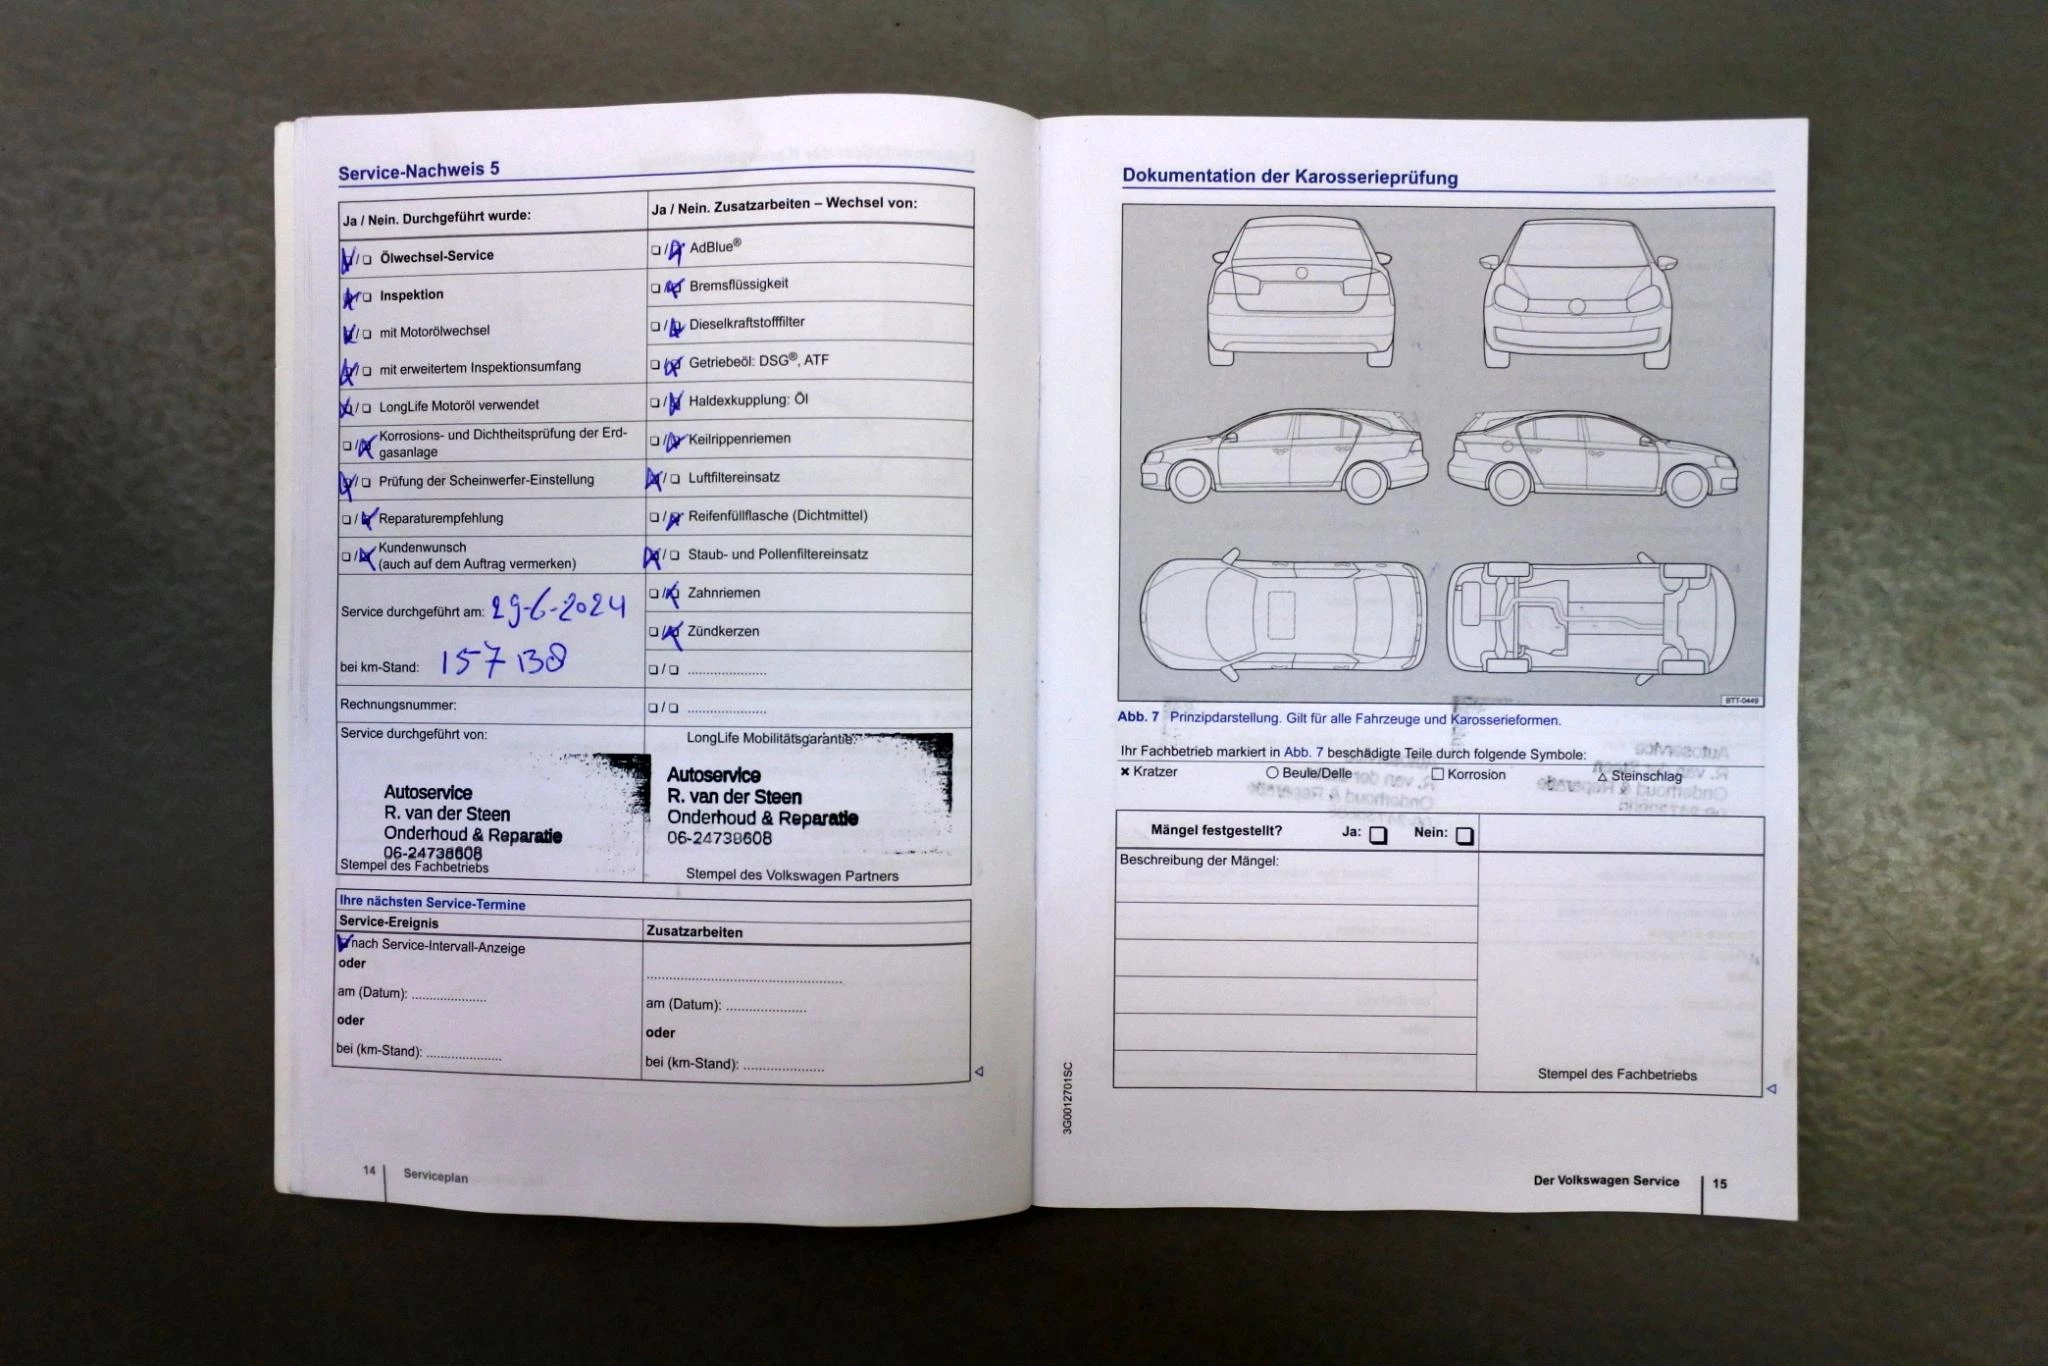 Service-Nachweis 5
Ja / Nein. Durchgeführt wurde:
Ölwechsel-Service
Inspektion
mit Motorölwechsel
mit erweitertem Inspektionsumfang
LongLife Motoröl verwendet
Korrosions- und Dichtheitsprüfung der Erd-
gasanlage
Prüfung der Scheinwerfer-Einstellung
Reparaturempfehlung
Kundenwunsch
(auch auf dem Auftrag vermerken)
Service durchgeführt am: 29-6-2024
bei km-Stand: 157 138
Rechnungsnummer:
Service durchgeführt von:
Autoservice
R. van der Steen
Onderhoud & Reparatie
06-24738608
Stempel des Fachbetriebs
Ja / Nein. Zusatzarbeiten – Wechsel von:
AdBlue®
Bremsflüssigkeit
Dieselkraftstofffilter
Getriebeöl: DSG®, ATF
Haldexkupplung: Öl
Keilrippenriemen
Luftfiltereinsatz
Reifenfüllflasche (Dichtmittel)
Staub- und Pollenfiltereinsatz
Zahnriemen
Zündkerzen
LongLife Mobilitätsgarantie:
Autoservice
R. van der Steen
Onderhoud & Reparatie
06-24738608
Stempel des Volkswagen Partners
Ihre nächsten Service-Termine
Service-Ereignis
nach Service-Intervall-Anzeige
oder
am (Datum): ....................
oder
bei (km-Stand): ....................
Zusatzarbeiten
am (Datum): ....................
oder
bei (km-Stand): ....................
14 Serviceplan
Dokumentation der Karosserieprüfung
BTT-0449
Abb. 7 Prinzipdarstellung. Gilt für alle Fahrzeuge und Karosserieformen.
Ihr Fachbetrieb markiert in Abb. 7 beschädigte Teile durch folgende Symbole:
× Kratzer ○ Beule/Delle □ Korrosion △ Steinschlag
Mängel festgestellt? Ja: Nein:
Beschreibung der Mängel:
Stempel des Fachbetriebs
3G0012701SC
Der Volkswagen Service 15